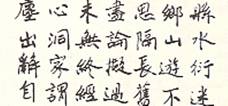 塵心未盡思鄉縣
出洞無論隔山水
辭家終擬長遊衍
自謂經過舊不迷